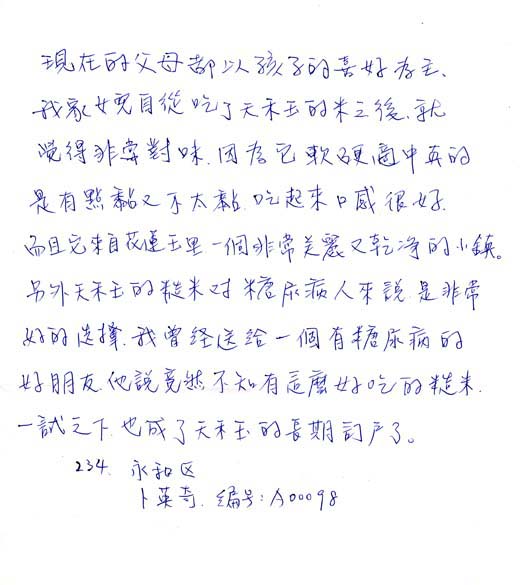 現在的父母都以孩子的喜好為主、
我家女兒自從吃了天禾玉的米之後、就
覺得非常對味、因為它軟硬適中真的
是有點黏又不太黏、吃起來口感很好、
而且它來自花蓮玉里一個非常美麗又乾净的小鎮。
另外天禾玉的糙米对糖尿病人來說是非常
好的选擇、我曾经送给一個有糖尿病的
好朋友、他說竟然不知有這麼好吃的糙米、
一試之下、也成了天禾玉的長期訂戶了。
234. 永和区
卜英奇. 编号:A00098